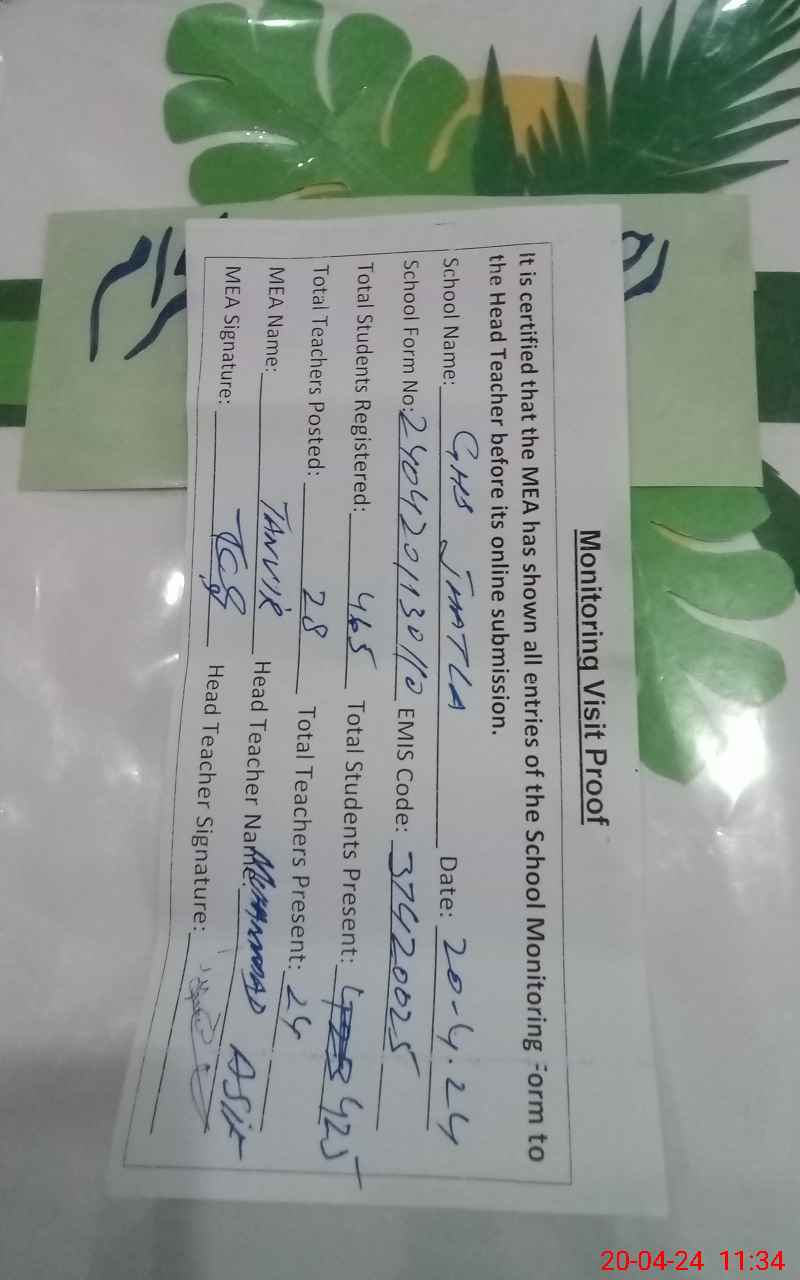 Monitoring Visit Proof
It is certified that the MEA has shown all entries of the School Monitoring Form to
the Head Teacher before its online submission.
School Name: GHS JHATLA Date: 20-4-24
School Form No: 2404201130110 EMIS Code: 37420025
Total Students Registered: 465 Total Students Present: 425
Total Teachers Posted: 28 Total Teachers Present: 24
MEA Name: TANVIR Head Teacher Name: MUHAMMAD ASIF
MEA Signature: Head Teacher Signature:
20-04-24 11:34